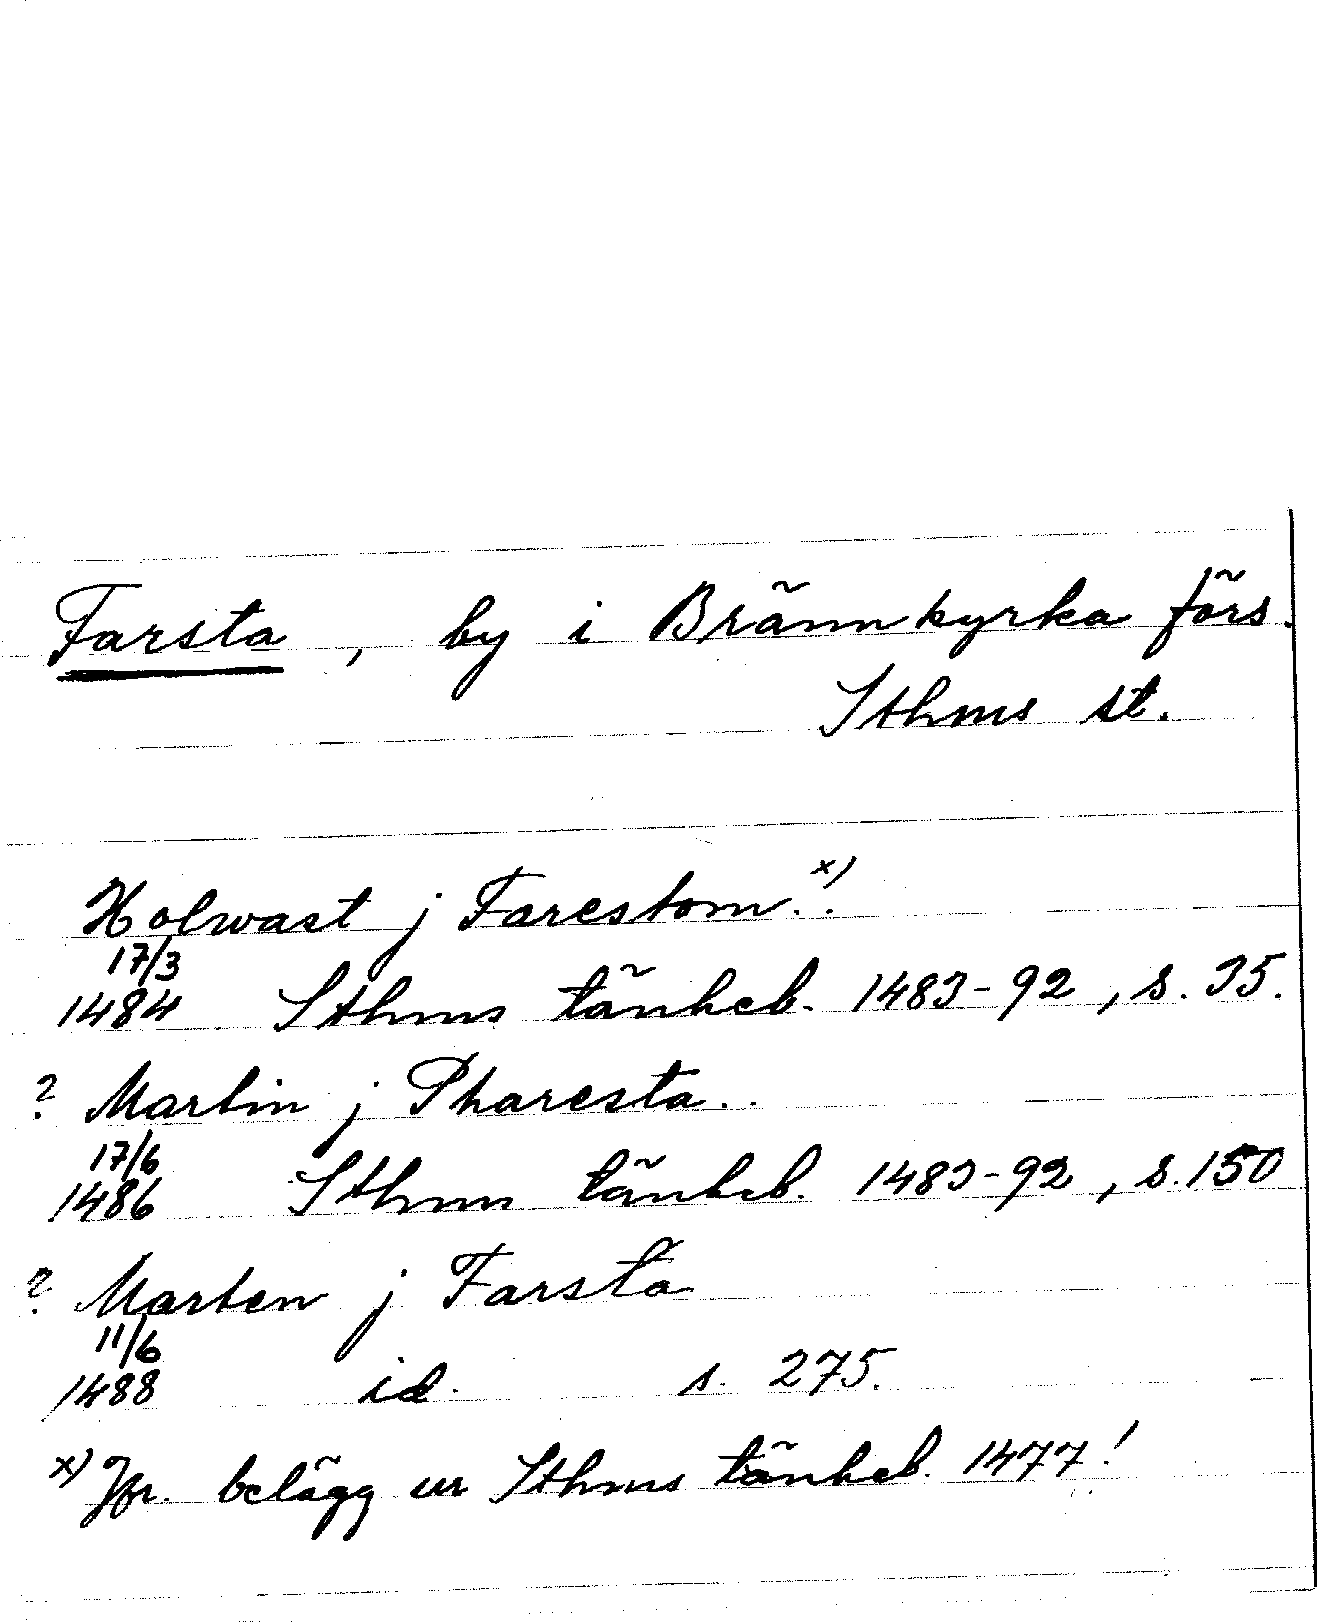 Farsta, by i Brännkyrka förs.
Sthms st.
Holwast j Farestom..x)
17/3
1484 Sthms tänkeb. 1483-92, s. 35.
? Martin j Pharesta..
17/6
1486 Sthms tänkeb. 1483-92, s. 150
? Marten j Farsta
11/6
1488 id. s. 275.
x) Jfr. belägg ur Sthms tänkeb. 1477!